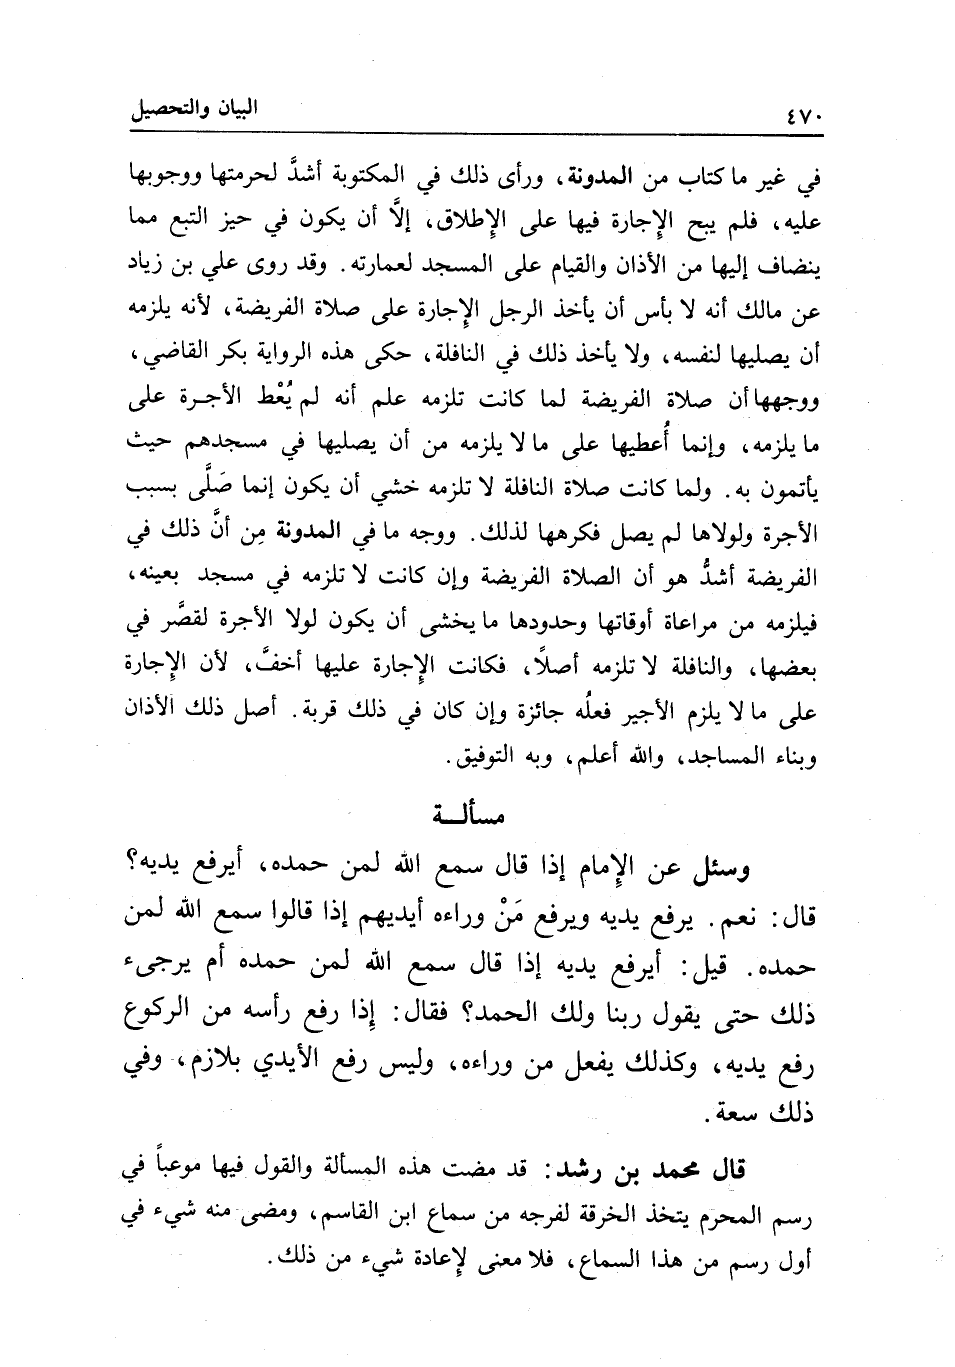 ٤٧٠
البيان والتحصيل
في غير ما كتاب من المدونة، ورأى ذلك في المكتوبة أشدَّ لحرمتها ووجوبها
عليه، فلم يبح الإجارة فيها على الإطلاق، إلَّا أن يكون في حيز التبع مما
ينضاف إليها من الأذان والقيام على المسجد لعمارته. وقد روى علي بن زياد
عن مالك أنه لا بأس أن يأخذ الرجل الإجارة على صلاة الفريضة، لأنه يلزمه
أن يصليها لنفسه، ولا يأخذ ذلك في النافلة، حكى هذه الرواية بكر القاضي،
ووجهها أن صلاة الفريضة لما كانت تلزمه علم أنه لم يُعْط الأجرة على
ما يلزمه، وإنما أُعطيها على ما لا يلزمه من أن يصليها في مسجدهم حيث
يأتمون به. ولما كانت صلاة النافلة لا تلزمه خشي أن يكون إنما صَلَّى بسبب
الأجرة ولولاها لم يصل فكرهها لذلك. ووجه ما في المدونة مِن أنَّ ذلك في
الفريضة أشدُّ هو أن الصلاة الفريضة وإن كانت لا تلزمه في مسجد بعينه،
فيلزمه من مراعاة أوقاتها وحدودها ما يخشى أن يكون لولا الأجرة لقصَّر في
بعضها، والنافلة لا تلزمه أصلًا، فكانت الإجارة عليها أخفَّ، لأن الإجارة
على ما لا يلزم الأجير فعلُه جائزة وإن كان في ذلك قربة. أصل ذلك الأذان
وبناء المساجد، والله أعلم، وبه التوفيق.
مسألــة
وسئل عن الإمام إذا قال سمع الله لمن حمده، أيرفع يديه؟
قال: نعم. يرفع يديه ويرفع مَنْ وراءه أيديهم إذا قالوا سمع الله لمن
حمده. قيل: أيرفع يديه إذا قال سمع الله لمن حمده أم يرجىء
ذلك حتى يقول ربنا ولك الحمد؟ فقال: إذا رفع رأسه من الركوع
رفع يديه، وكذلك يفعل من وراءه، وليس رفع الأيدي بلازم، وفي
ذلك سعة.
قال محمد بن رشد: قد مضت هذه المسألة والقول فيها موعباً في
رسم المحرم يتخذ الخرقة لفرجه من سماع ابن القاسم، ومضى منه شيء في
أول رسم من هذا السماع، فلا معنى لإعادة شيء من ذلك.